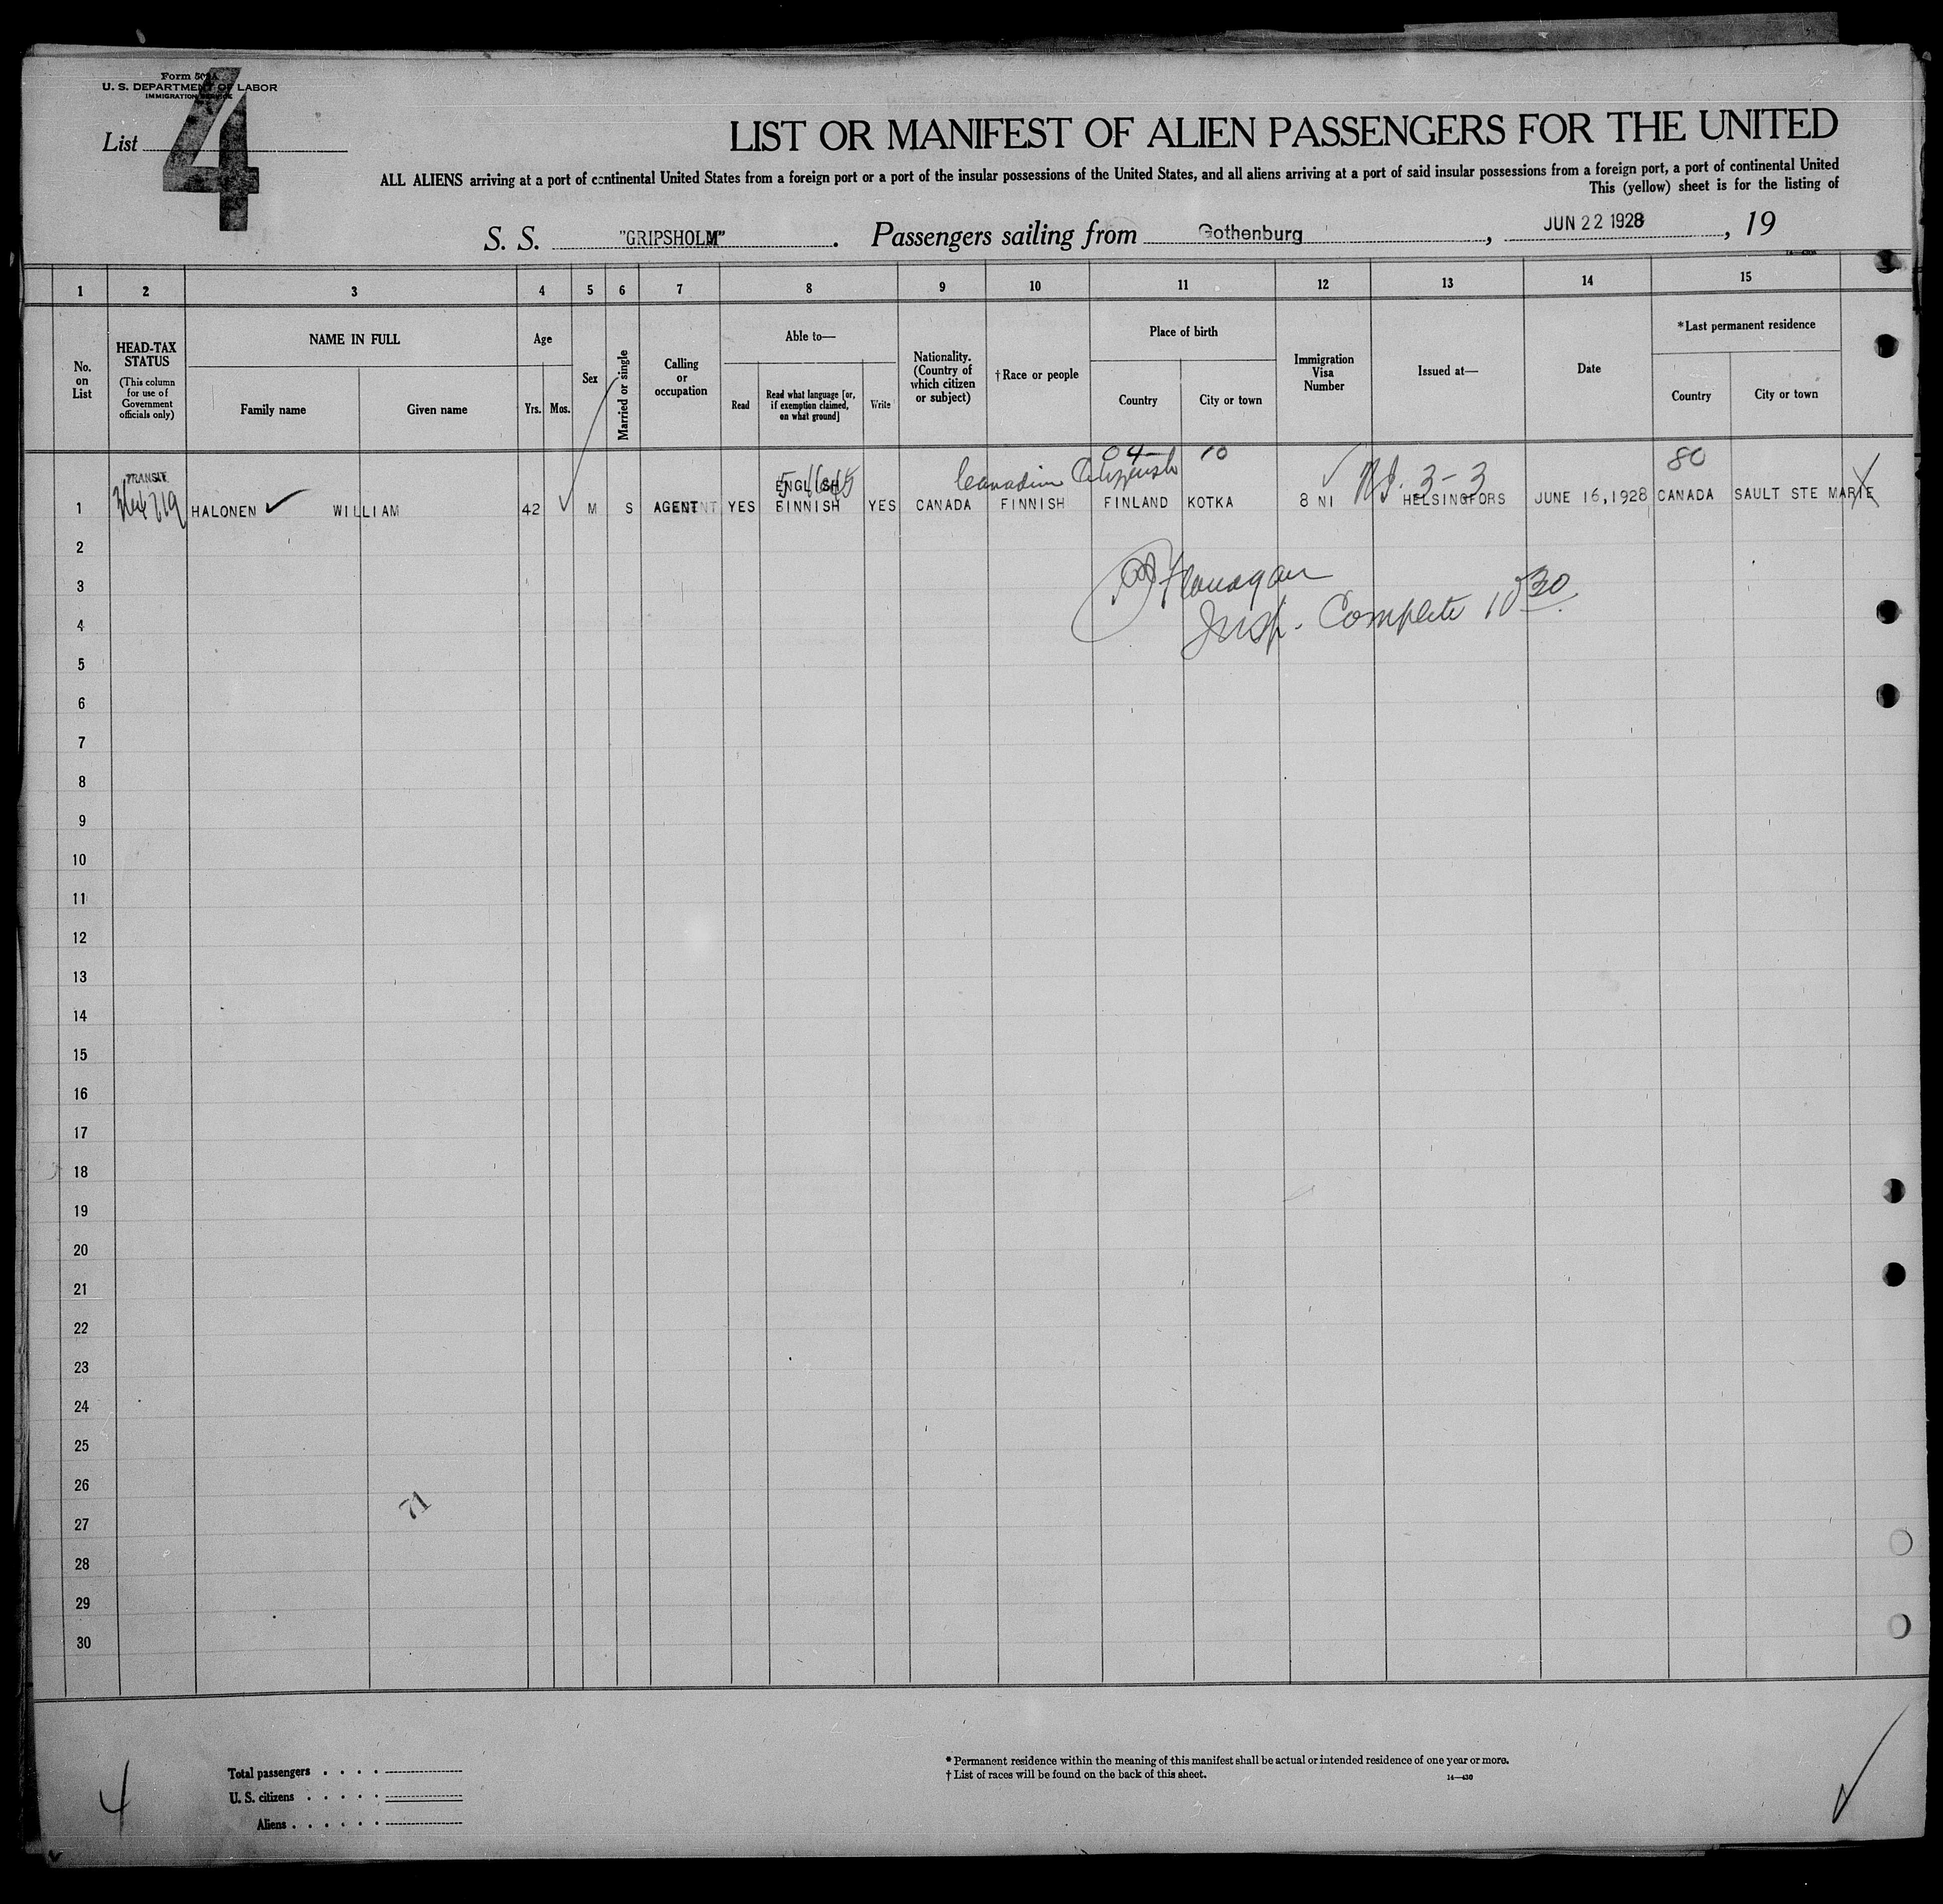 Form 500A
U. S. DEPARTMENT OF LABOR
IMMIGRATION SERVICE
List 4
LIST OR MANIFEST OF ALIEN PASSENGERS FOR THE UNITED
ALL ALIENS arriving at a port of continental United States from a foreign port or a port of the insular possessions of the United States, and all aliens arriving at a port of said insular possessions from a foreign port, a port of continental United
This (yellow) sheet is for the listing of
S. S. "GRIPSHOLM". Passengers sailing from Gothenburg, JUN 22 1928, 19
1 2 3 4 5 6 7 8 9 10 11 12 13 14 15
No. on List
HEAD-TAX STATUS
(This column for use of Government officials only)
NAME IN FULL
Family name
Given name
Age
Yrs.
Mos.
Sex
Married or single
Calling or occupation
Able to—
Read
Read what language [or, if exemption claimed, on what ground]
Write
Nationality. (Country of which citizen or subject)
†Race or people
Place of birth
Country
City or town
Immigration Visa Number
Issued at—
Date
*Last permanent residence
Country
City or town
04 10
80
Canadian
TRANSIT
ENGLISH
3-3
1 HALONEN WILLIAM 42 M S AGENT YES FINNISH YES CANADA FINNISH FINLAND KOTKA 8 NI HELSINGFORS JUNE 16,1928 CANADA SAULT STE MARIE
2
3
Flanagan
4
Insp. Complete 10 30
5
6
7
8
9
10
11
12
13
14
15
16
17
18
19
20
21
22
23
24
25
26
71
27
28
29
30
4
Total passengers . . . .
U. S. citizens . . . . .
Aliens . . . . . .
* Permanent residence within the meaning of this manifest shall be actual or intended residence of one year or more.
† List of races will be found on the back of this sheet.
14—430